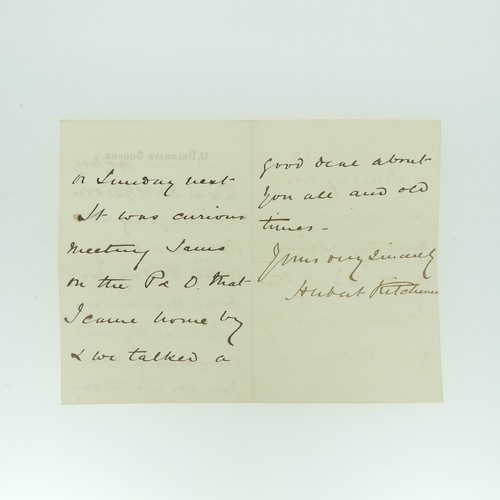 or Sunday next
It was curious
meeting James
on the P & O. that
I came home by
& we talked a
good deal about
you all and old
times -
Yours very sincerely
Herbert Kitchener
17, BELGRAVE SQUARE